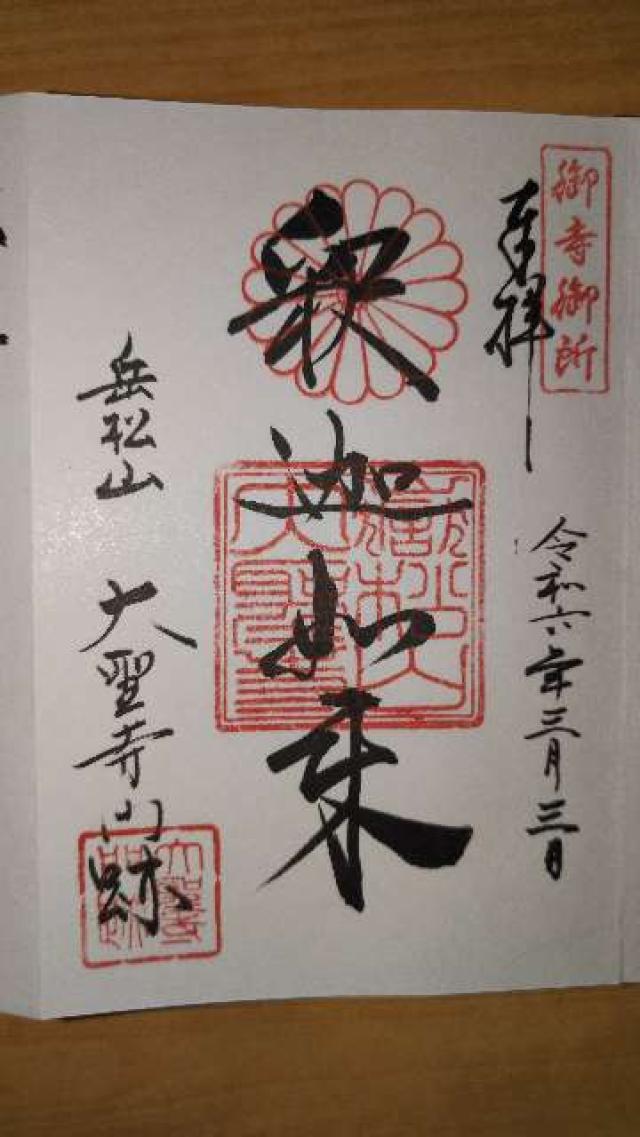 御寺御所
奉拝
令和六年三月三日
釈迦如来
岳松山
大聖寺门跡